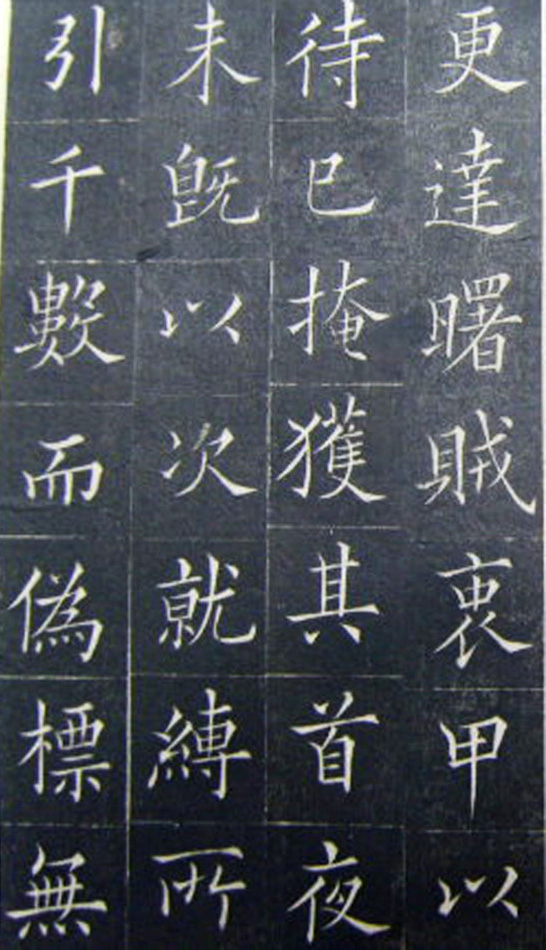 更達曙賊衷甲以
待已掩獲其首夜
未旣以次就縛所
引千數而偽標無